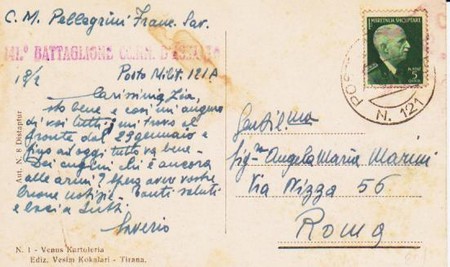 C. M. Pellegrini Franc. Sav.
141° BATTAGLIONE CC.NN. D'ASSALTO
18/2 Posta Milit. 121A
Carissima zia,
sto bene e così mi auguro
di voi tutti; mi trovo al
fronte dal 29 gennaio e
fino ad oggi tutto va bene -
Dei cugini chi è ancora
alle armi? Spero avere vostre
buone notizie. tanti saluti
e baci a tutti
Saverio
N. 1 - Venus Kartoleria
Ediz. Vesim Kokalari - Tirana.
Aut. N. 8 Distaptur
MBRETNIJA SHQIPTARE
5
POS
N. 121
Gentil.ma
sig.na Angela Maria Marini
Via Nizza 56
Roma